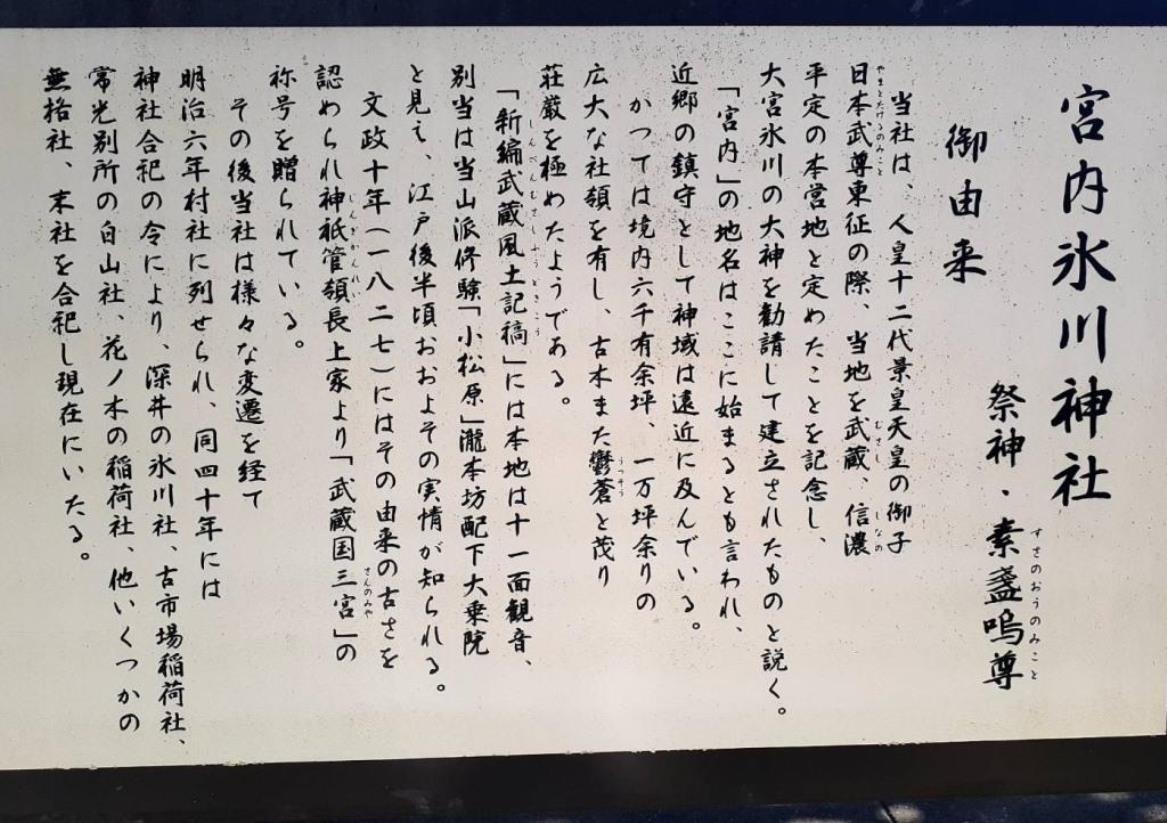 宮内氷川神社
祭神・素盞嗚尊
すさのおうのみこと
御由来
当社は、人皇十二代景皇天皇の御子
日本武尊東征の際、当地を武蔵、信濃
やまとたけるのみこと
むさし
しなの
平定の本営地と定めたことを記念し、
大宮氷川の大神を勧請して建立されたものと説く。
「宮内」の地名はここに始まるとも言われ、
近郷の鎮守として神域は遠近に及んでいる。
かつては境内六千有余坪、一万坪余りの
広大な社領を有し、古木また鬱蒼と茂り
うつそう
荘厳を極めたようである。
「新編武蔵風土記稿」には本地は十一面観音、
しんぺんむさしふうどきこう
別当は当山派修験「小松原」瀧本坊配下大乗院
と見え、江戸後半頃おおよその実情が知られる。
文政十年(一八二七)にはその由来の古さを
認められ神祇管領長上家より「武蔵国三宮」の
じんぎかんれい
さんのみや
称号を贈られている。
その後当社は様々な変遷を経て
明治六年村社に列せられ、同四十年には
神社合祀の令により、深井の氷川社、古市場稲荷社、
常光別所の白山社、花ノ木の稲荷社、他いくつかの
無格社、末社を合祀し現在にいたる。